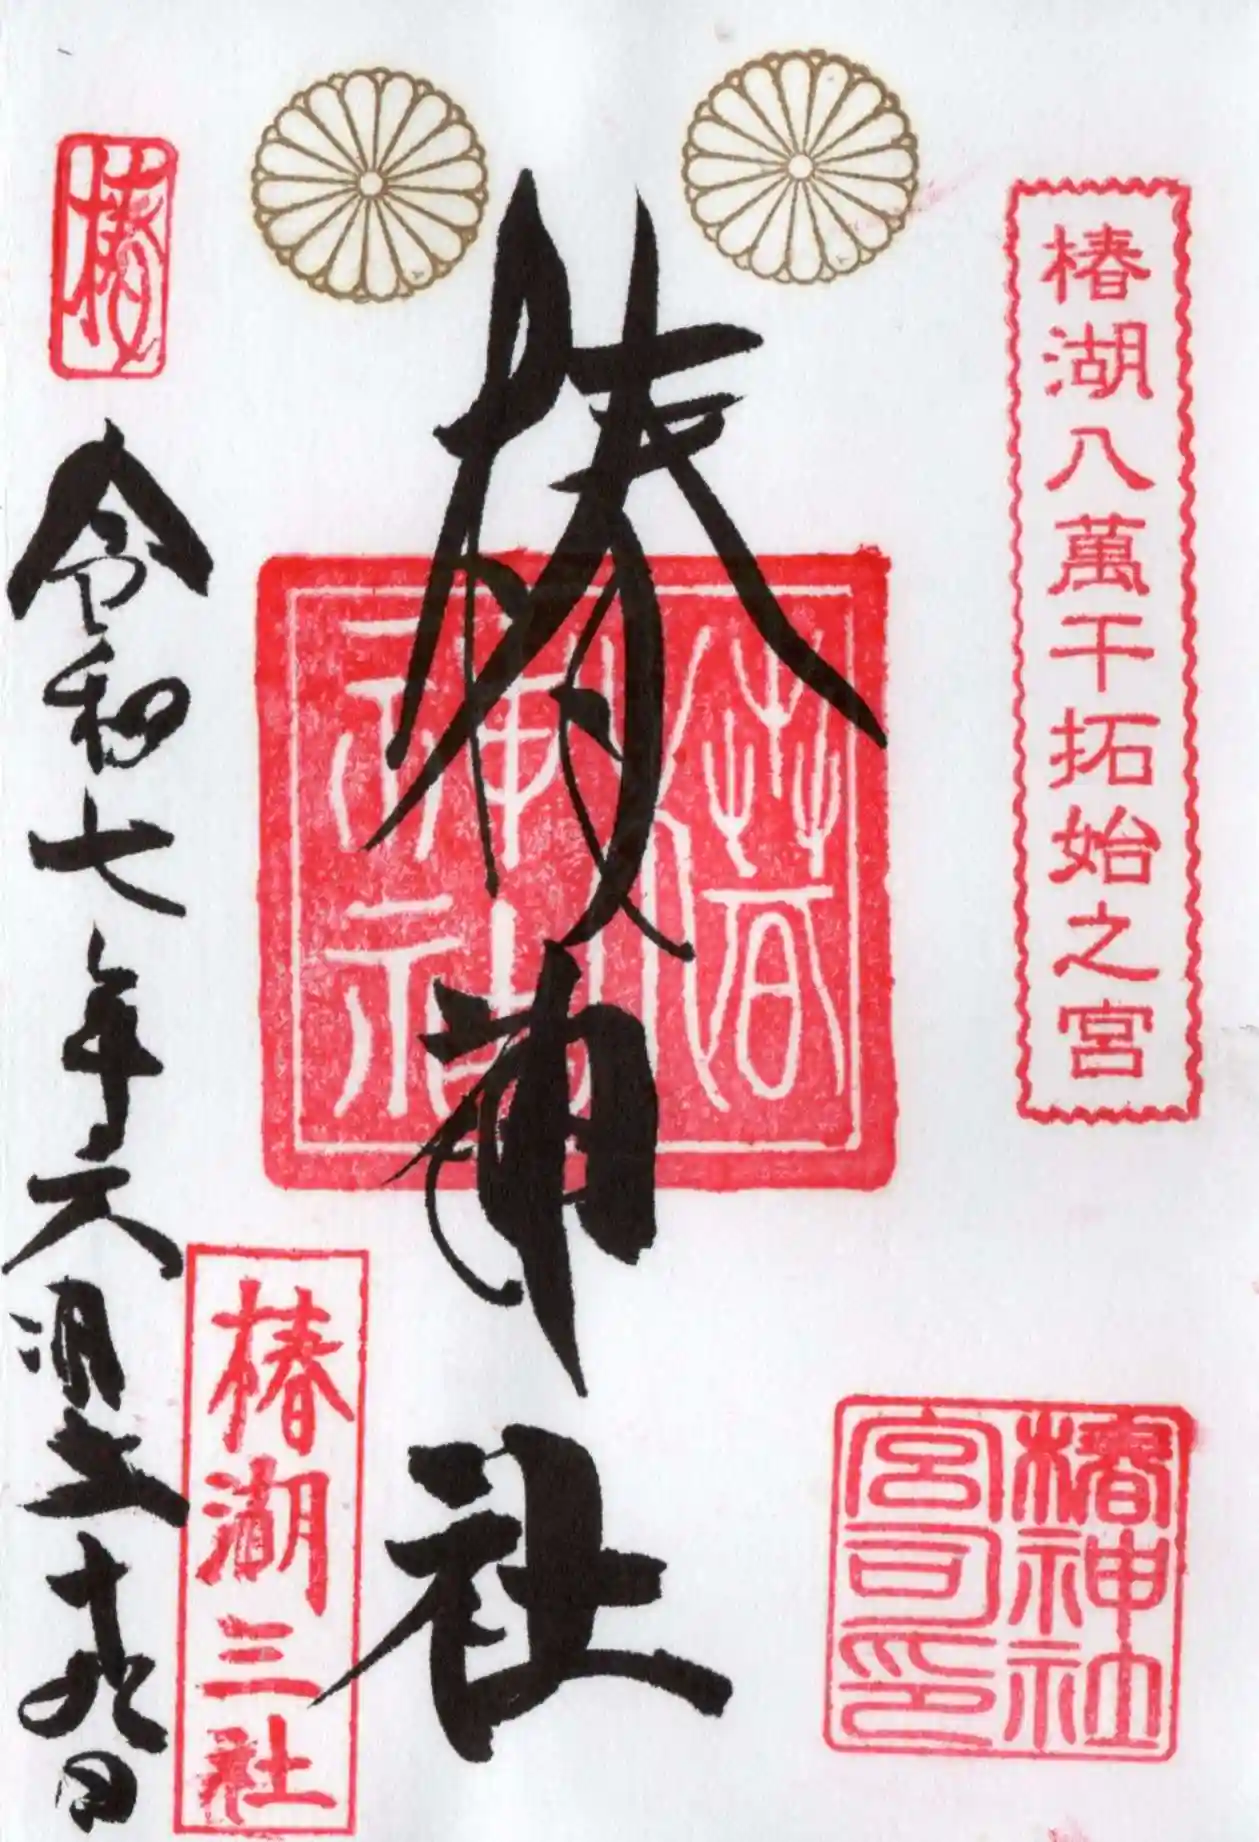 椿湖八萬干拓始之宮
椿神社
椿神社
宮司印
椿
令和七年六
十九日
椿湖三社